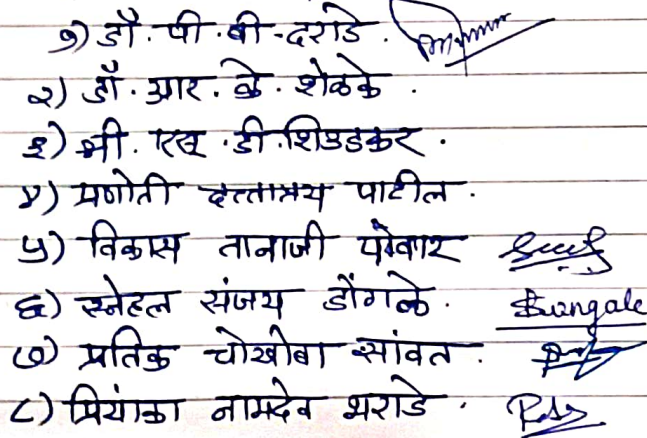 १) डॉ. पी. बी. दराडे.
२) डॉ. आर. के. शेळके.
३) श्री. एस. डी. शिऊडकर.
४) प्रणोती दत्तात्रय पाटील.
५) विकास तानाजी पोवार
६) स्नेहल संजय डोंगळे. Dungale
७) प्रतिक चोखोबा सावंत.
८) प्रियांका नामदेव भराडे.